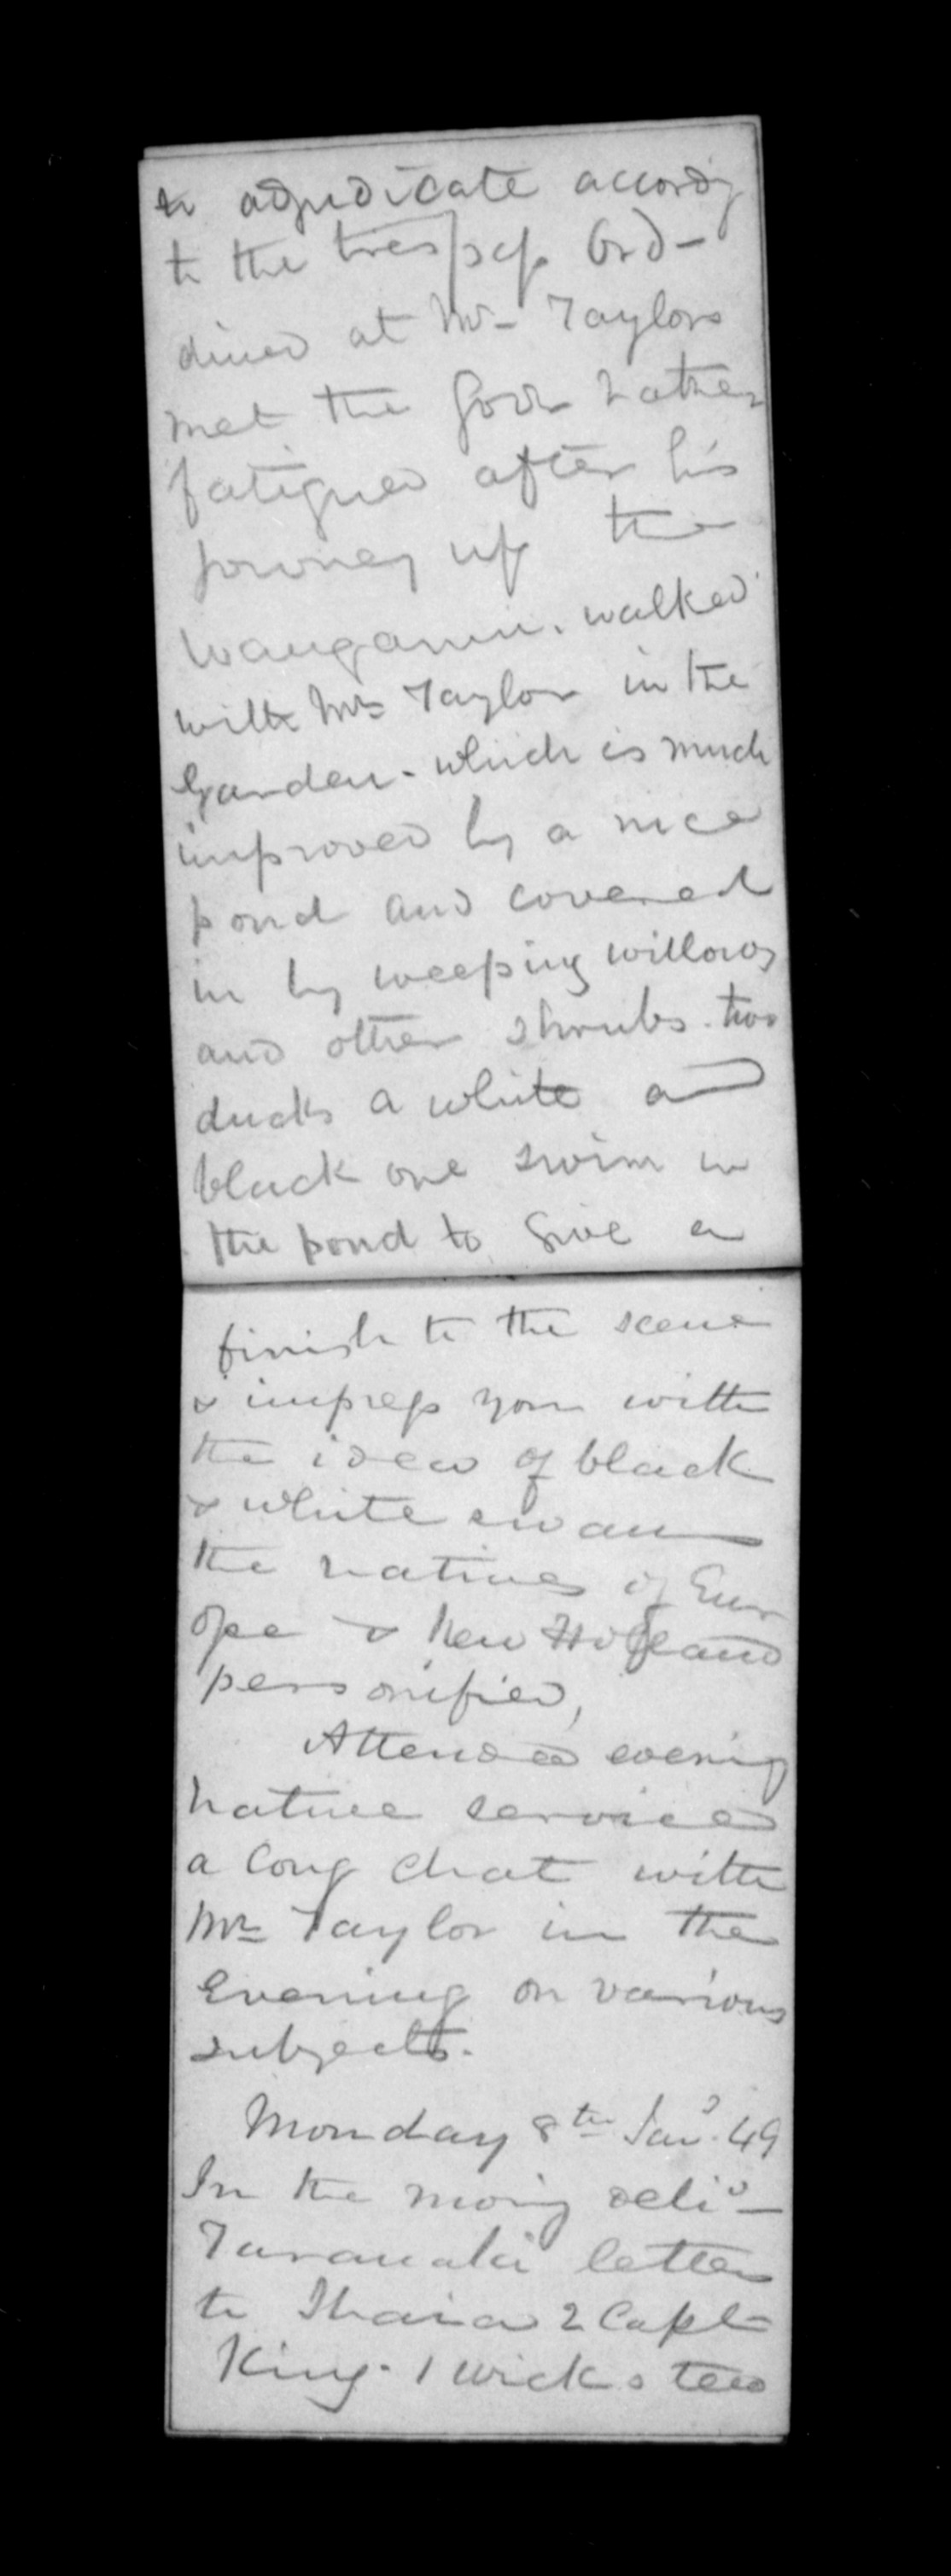 to adjudicate accordg
to the trespass Ord-
dined at Mr Taylors
met the Govr rather
fatigued after his
journey up the
Wanganui. walked
with Mrs Taylor in the
Garden. which is much
improved by a nice
pond and covered
in by weeping willows
and other shrubs. two
ducks a white and
black one swim in
the pond to give a
finish to the scene
& impress you with
the idea of black
& white swan
the natives of Eur
ope & New Holland
personified,
Attended evening
native service
a long chat with
Mr Taylor in the
Evening on various
subjects.
Monday 8th Jany. 49
In the morng deld
Taranaki letters
to Ihaia 2 Capt
King. 1 Wicks two